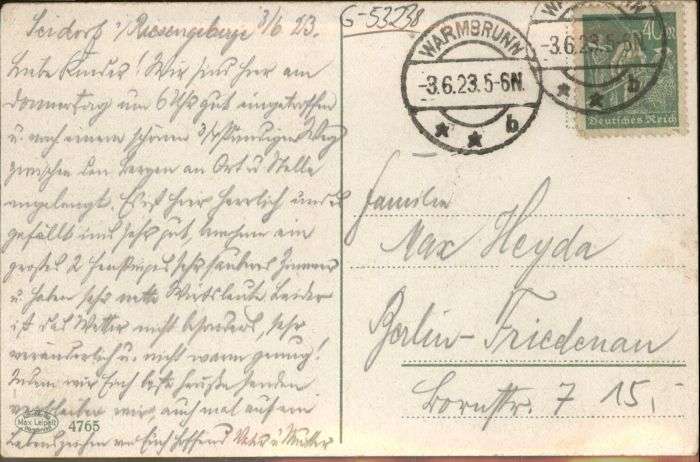 Seidorf i/Riesengebirge 3/6 23.
Liebe Kinder! Wir sind hier am
Donnerstag um 6 Uhr gut eingetroffen
u. nach einem schönen 3/4 stündigen Weg
zwischen den Bergen an Ort u. Stelle
angelangt. Es ist hier herrlich und es
gefällt uns sehr gut, bewohnen ein
großes 2 fenstriges sehr sauberes Zimmer
u. haben sehr nette Wirtsleute. Leider
ist das Wetter nicht besonders, sehr
veränderlich u. nicht warm genug!
Indem wir Euch beste Grüße senden
verbleiben wir, auch mal auf ein
Lebenszeichen von Euch hoffend Vater u. Mutter
Max Leipelt
Warmbrunn
4765
G-53238
WARMBRUNN
-3.6.23.5-6N.
* * b
WARMBRUNN
-3.6.23.5-6N.
* * b
40
Deutsches Reich
Familie
Max Heyda
Berlin-Friedenau
Bornstr. 7 15,-